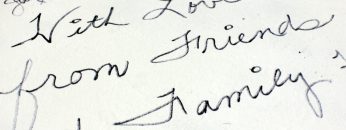 With Love
from Friends
Family